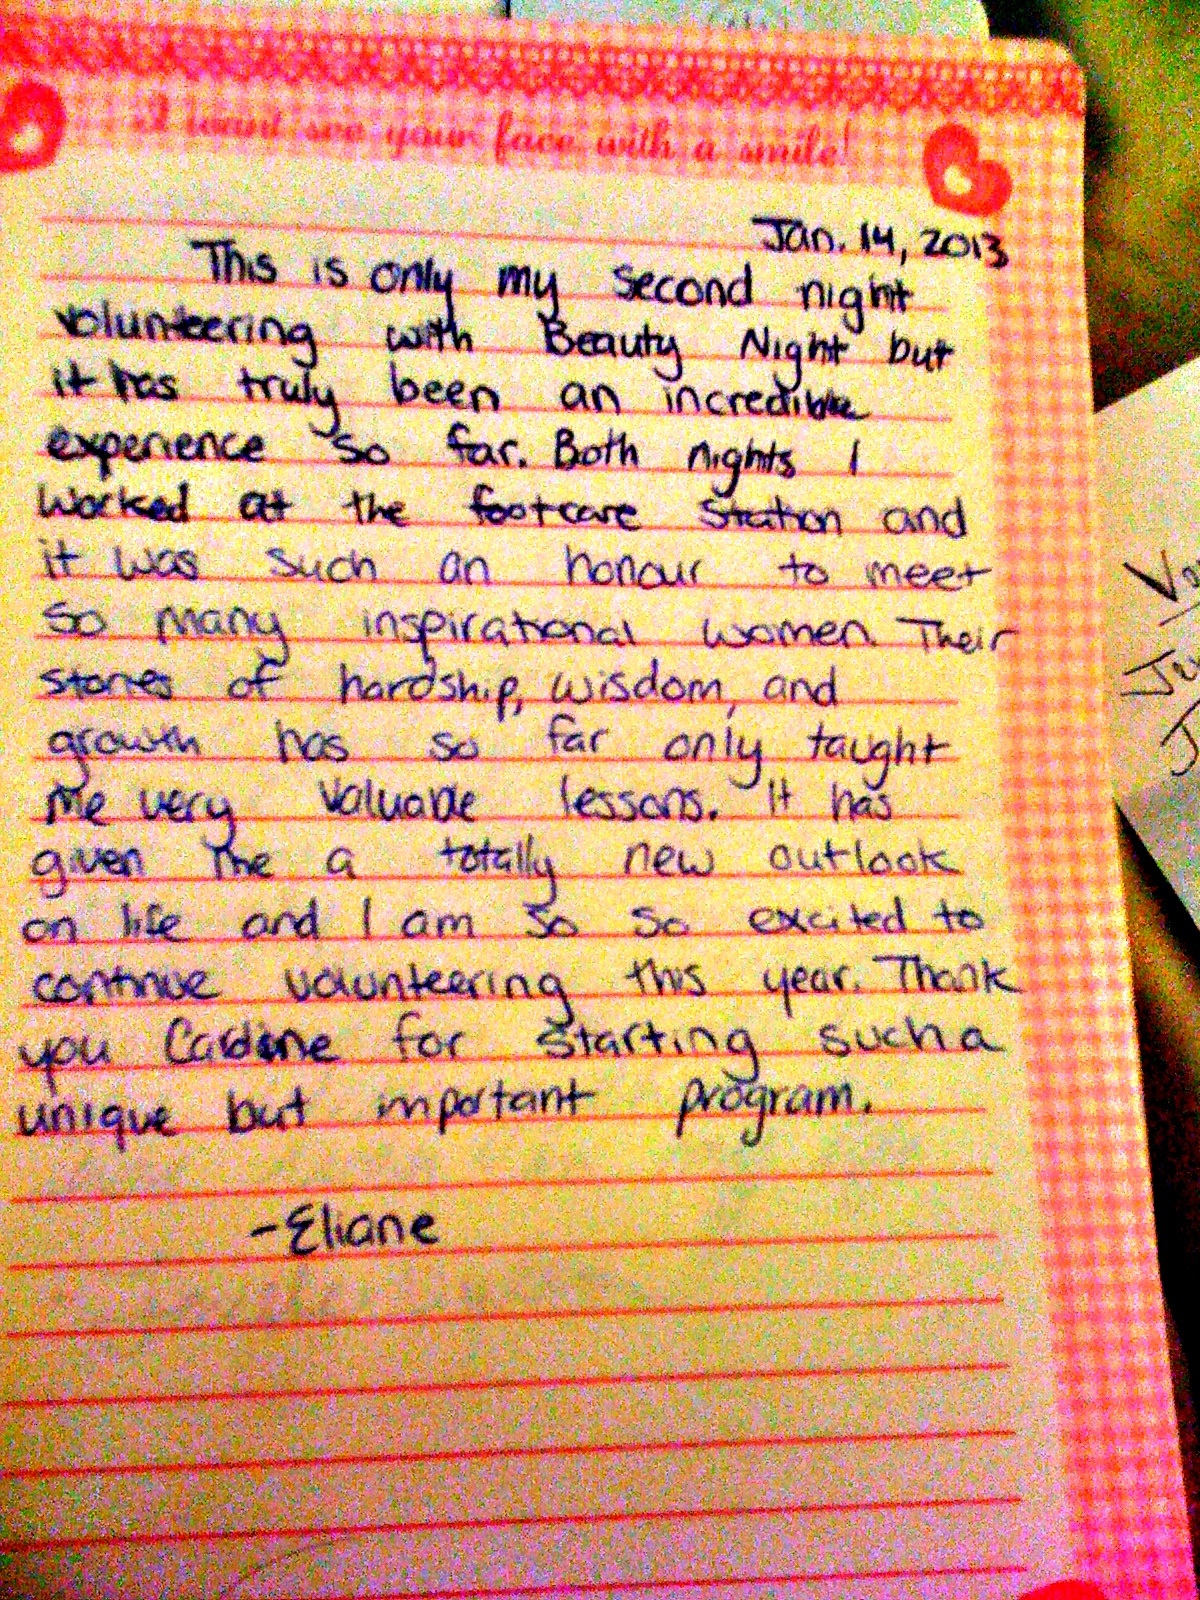 I want see your face with a smile!
Jan. 14, 2013
This is only my second night
volunteering with Beauty Night but
it has truly been an incredible
experience so far. Both nights I
worked at the footcare station and
it was such an honour to meet
so many inspirational women. Their
stories of hardship, wisdom, and
growth has so far only taught
me very valuable lessons. It has
given me a totally new outlook
on life and I am so so excited to
continue volunteering this year. Thank
you for starting such a
unique but important program.
-Eliane